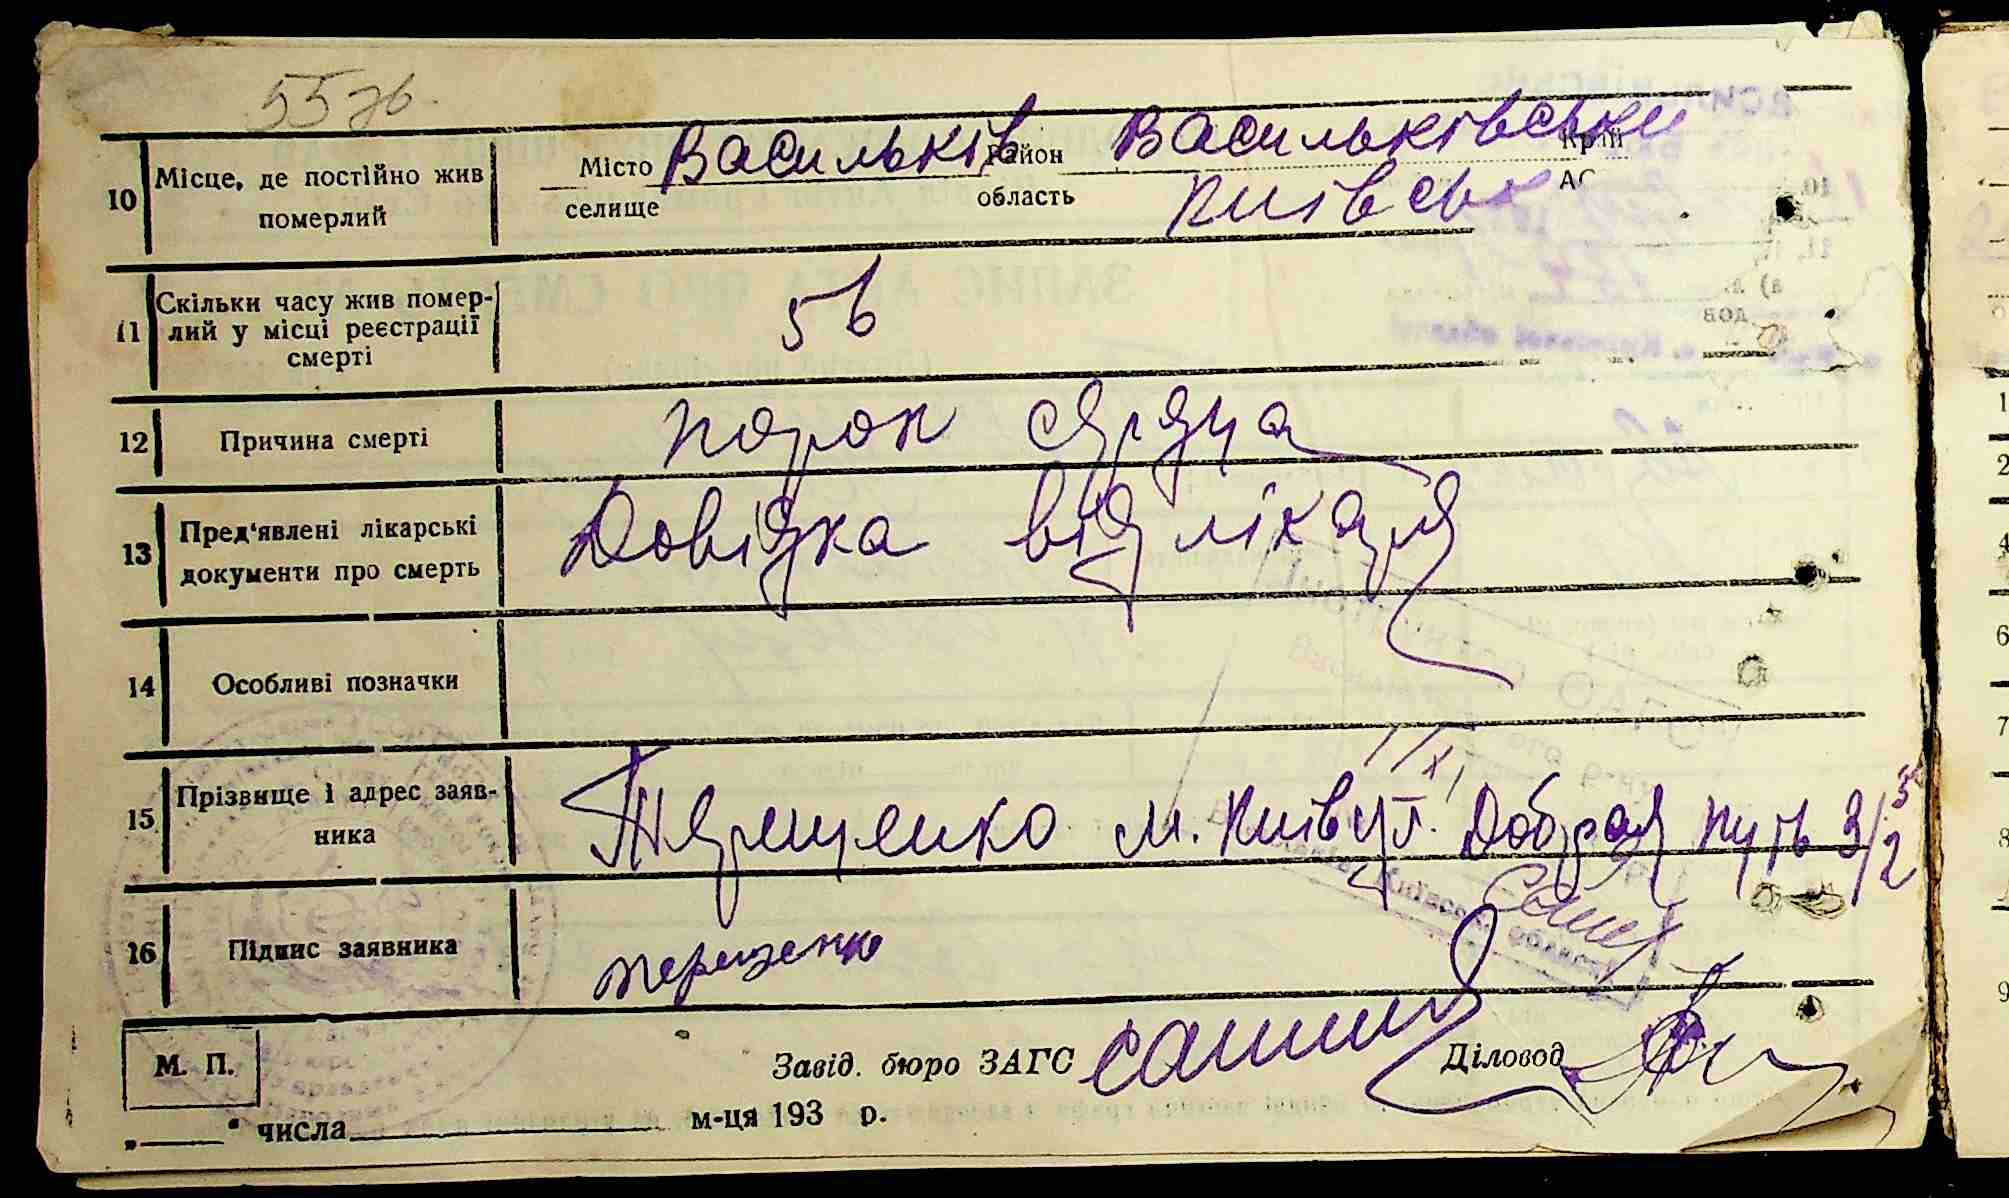 55зв.
10 Місце, де постійно жив померлий
Місто Васильків Район Васильківськи Край
селище область Київськ АС
11 Скільки часу жив помер-
лий у місці реєстрації
смерті
5в
12 Причина смерті порок сярдца
13 Пред'явлені лікарські
документи про смерть
Довідка від лікаря
14 Особливі позначки
15 Прізвище і адрес заяв-
ника
Тярещенко м. Київ ул. Добрая путь 3/2
16 Підпис заявника терещенко
М. П.
Завід. бюро ЗАГС Діловод
„ “ числа м-ця 193 р.